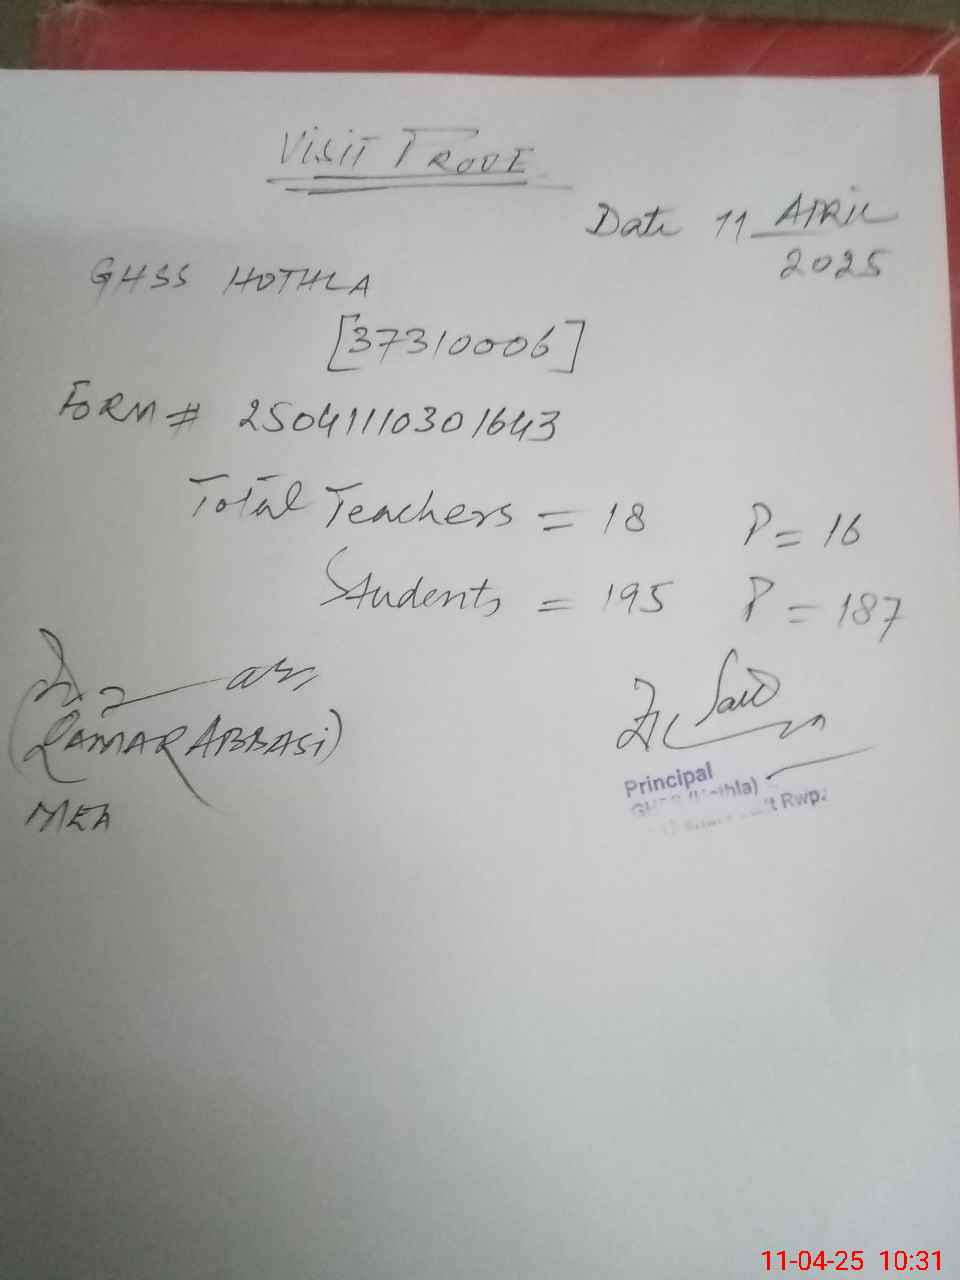 VISIT PROOF
Date 11 APRIL
2025
GHSS HOTHLA
[37310006]
FORM # 25041110301643
Total Teachers = 18 P = 16
Students = 195 P = 187
(QAMAR ABBASI)
MEA
Principal
Rwp.
11-04-25 10:31